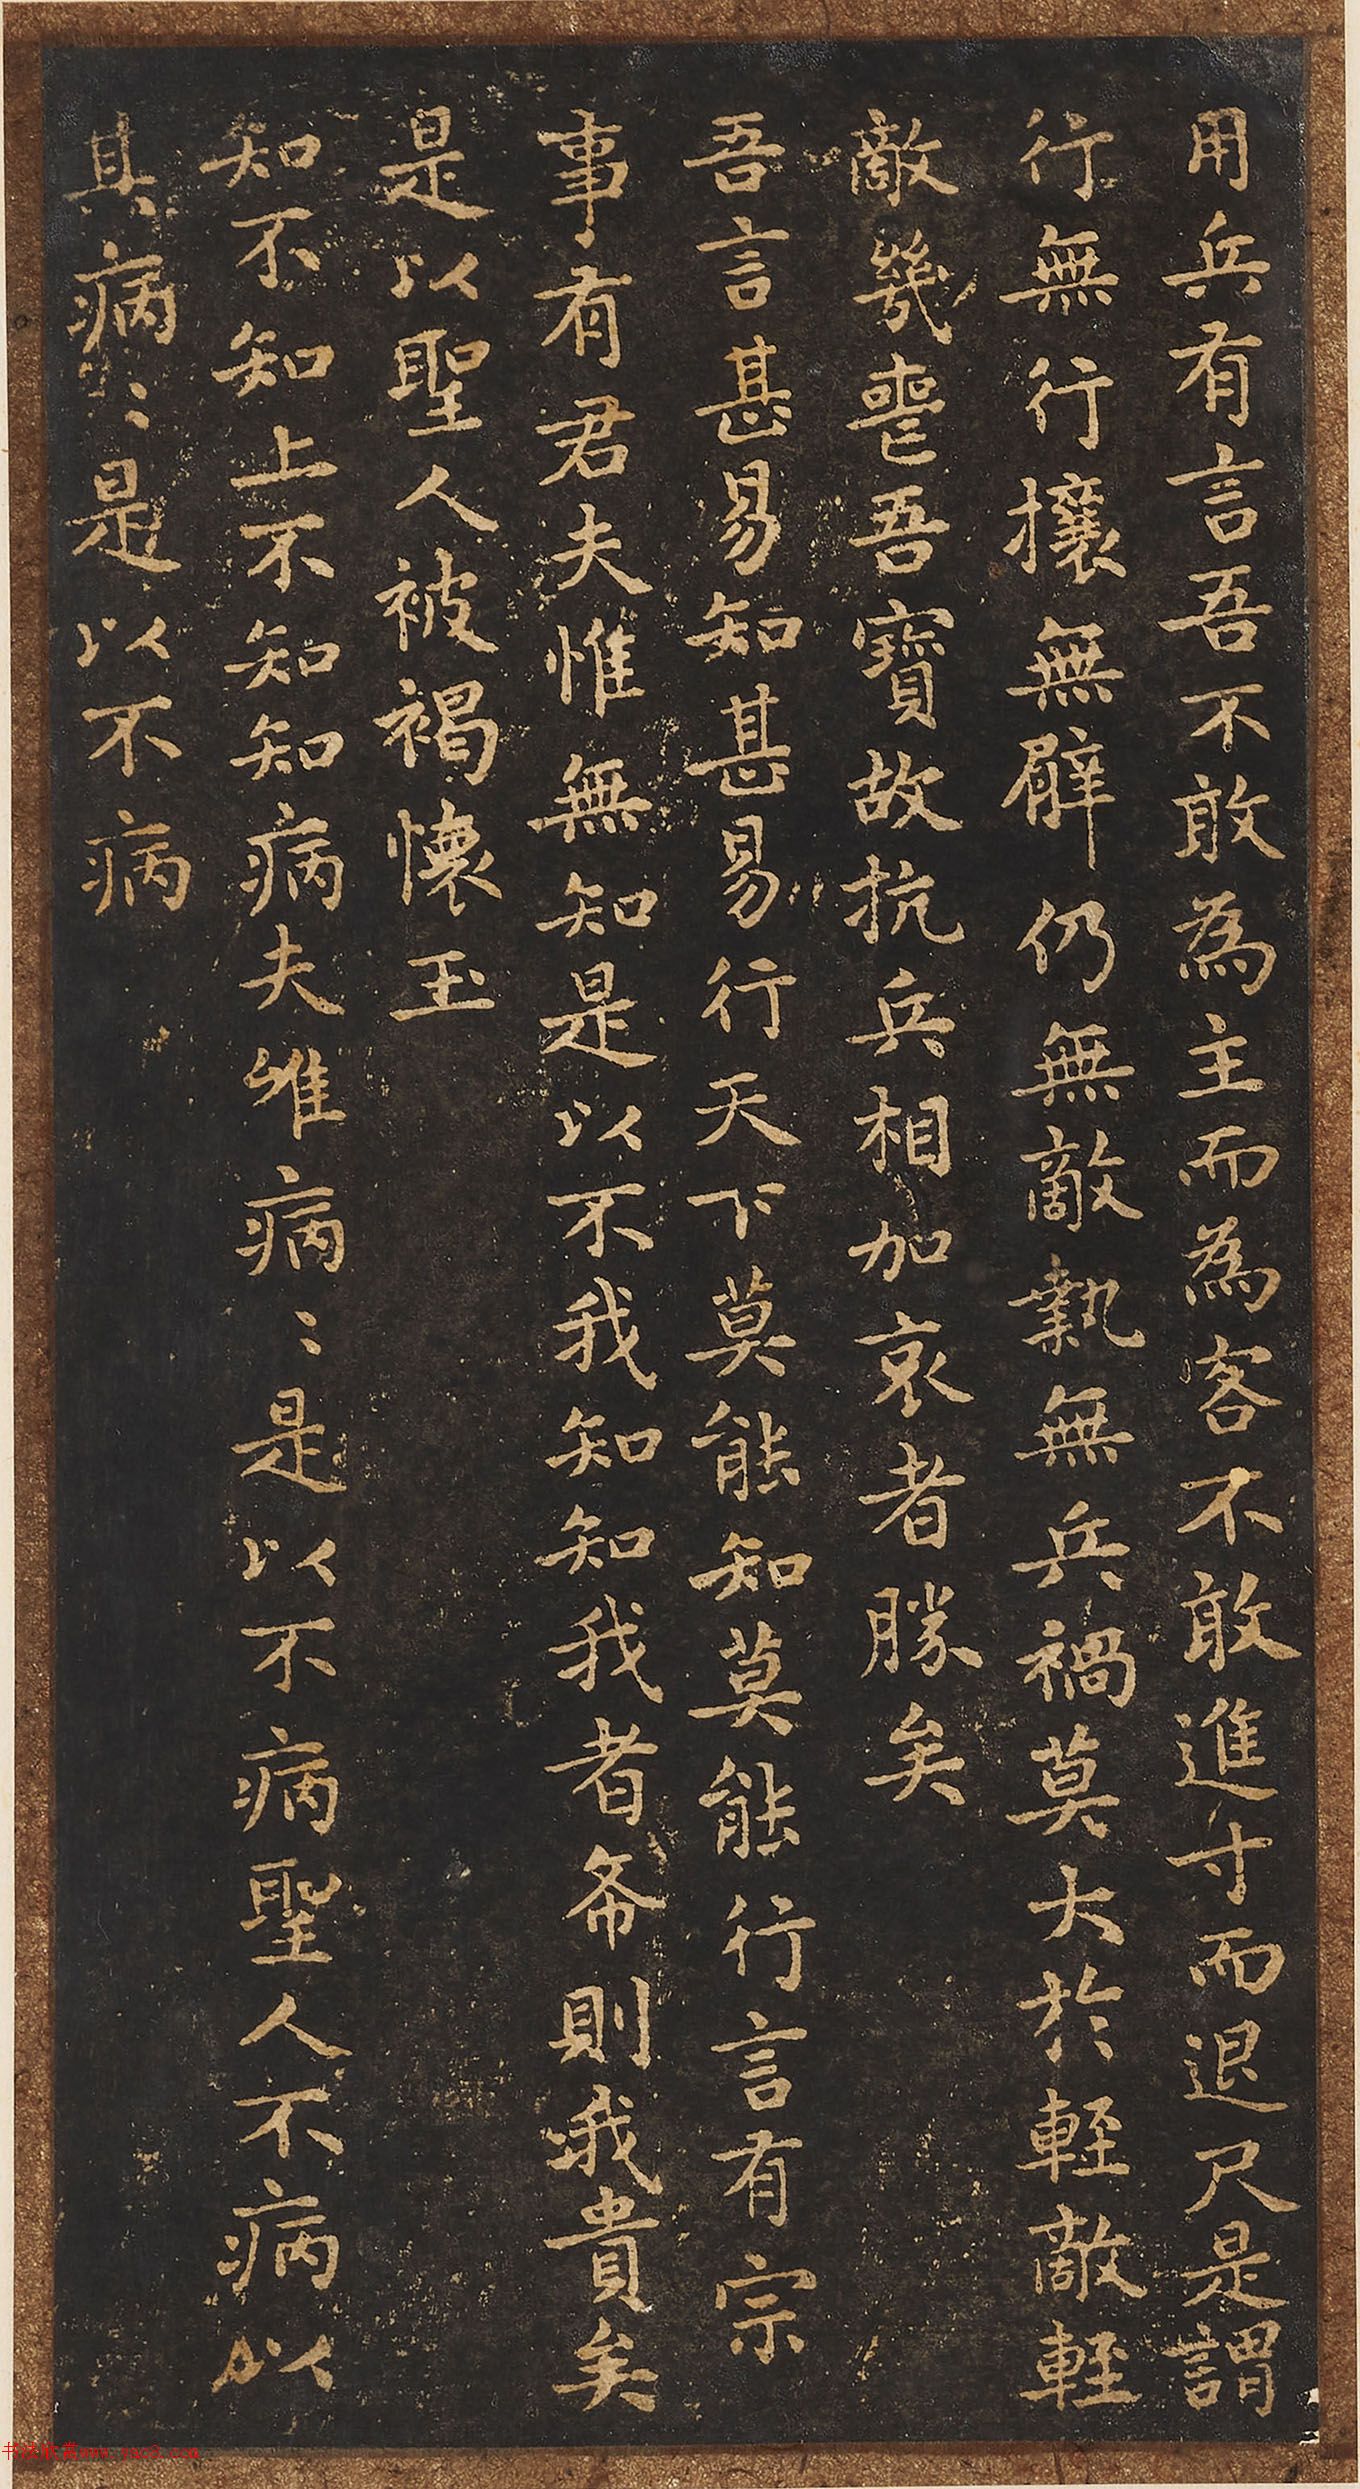 用兵有言吾不敢為主而為客不敢進寸而退尺是謂
行無行攘無臂仍無敵執無兵禍莫大於輕敵輕
敵幾喪吾寶故抗兵相加哀者勝矣
吾言甚易知甚易行天下莫能知莫能行言有宗
事有君夫惟無知是以不我知知我者希則我貴矣
是以聖人被褐懷玉
知不知上不知知病夫唯病〻是以不病聖人不病以
其病〻是以不病